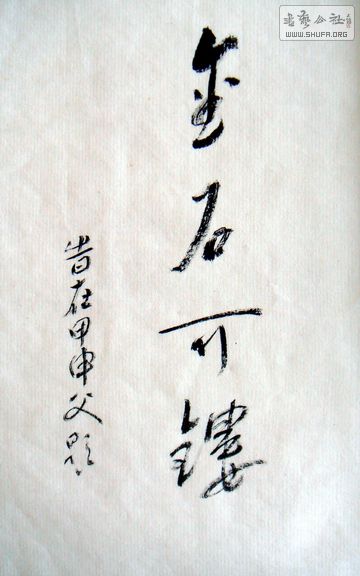 書藝公社
WWW.SHUFA.ORG
金石可鏤
旹在甲申父題